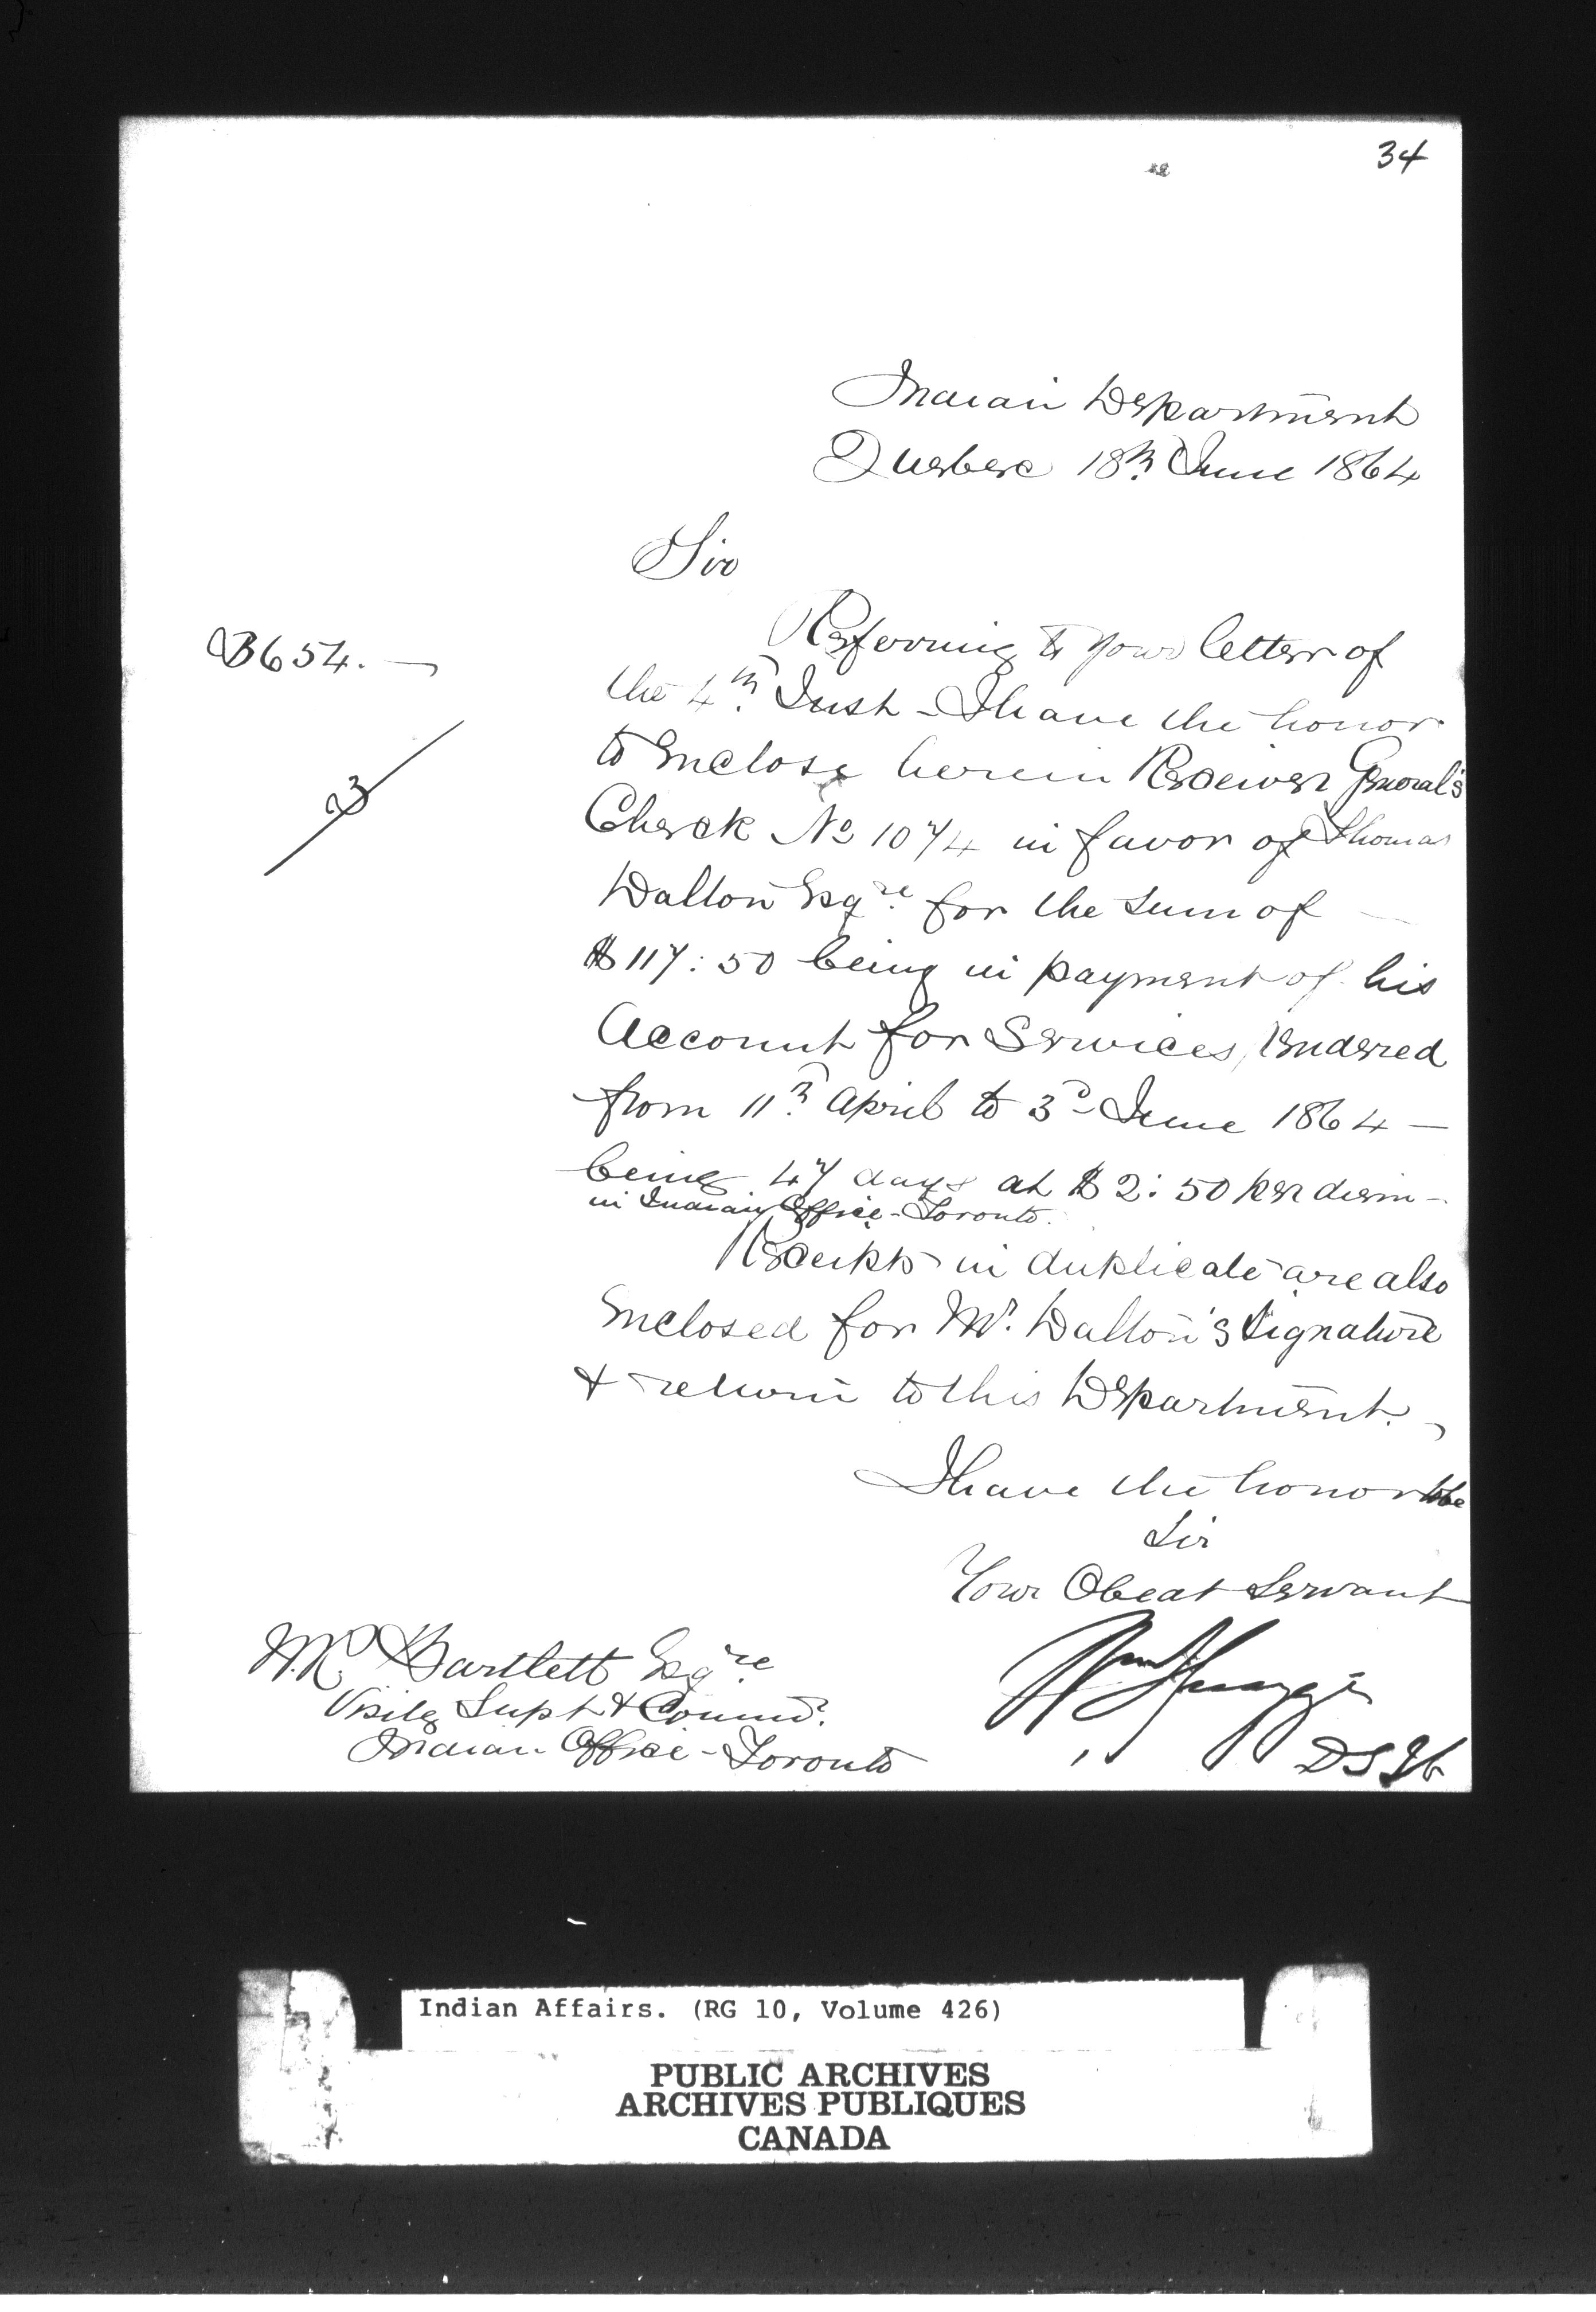 34
Indian Department
Quebec 18th June 1864
Sir
B654. —
Referring to your letter of
the 4th Inst - I have the honor
to Enclose herein Receiver General's
23
Check No 1074 in favor of Thomas
Dalton Esqre for the Sum of —
$117:50 being in payment of his
Account for Services, rendered
from 11th April to 3d June 1864 —
being 47 days at $2:50 per diem -
in Indian Office - Toronto.
Receipts in duplicate are also
Enclosed for Mr. Dalton's Signature
& return to this Department.
I have the honor to be
Sir
Your Obedt Servant
W.R. Bartlett Esqre
Visitg Supt & Commr.
Indian Office - Toronto
Indian Affairs. (RG 10, Volume 426)
PUBLIC ARCHIVES
ARCHIVES PUBLIQUES
CANADA